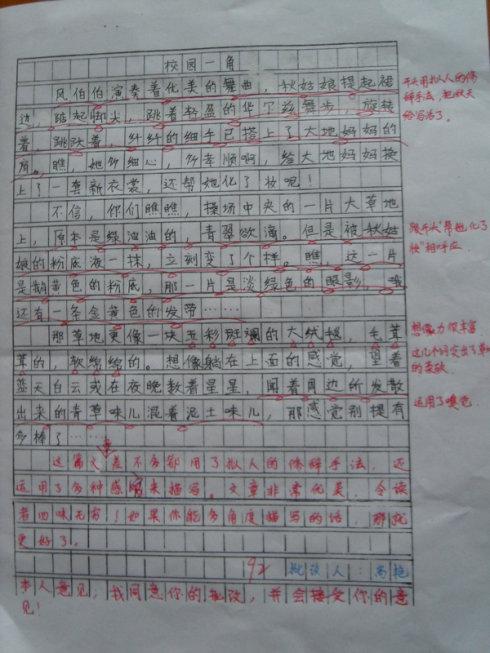 校园一角
风伯伯演奏着优美的舞曲，秋姑娘提起裙
边，踮起脚尖，跳着轻盈的华尔兹舞步，旋转
着，跳跃着，纤纤的细手已搭上了大地妈妈的
肩。瞧，她多细心，多孝顺啊，给大地妈妈换
上了一套新衣裳，还帮她化了妆呢！
不信，你们瞧瞧，操场中央的一片大草地
上，原本是绿油油的，青翠欲滴。但是被秋姑
娘的粉底液一抹，立刻变了个样。瞧，这一片
是鹅黄色的粉底，那一片是淡绿色的眼影，哦
还有一条金黄色的发带……
那草地更像一块五彩斑斓的大绒毯，毛茸
茸的，软绵绵的。想像躺在上面的感觉，望着
蓝天白云或在夜晚数着星星，闻着周边所发散
出来的青草味儿混着泥土味儿，那感觉别提有
多棒了……
开头用拟人的修
辞手法，把秋天
给写活了。
跟开头“帮她化了
妆”相呼应
想像力很丰富
这几个词突出了草地
的柔软
运用了嗅觉
这篇文差不多都用了拟人的修辞手法，还
运用了多种感官来描写。文章非常优美，令读
者回味无穷！如果你能多角度描写的话，那就
更好了。
92 批改人：
本人意见，我同意你的批改，并会接受你的意
见！